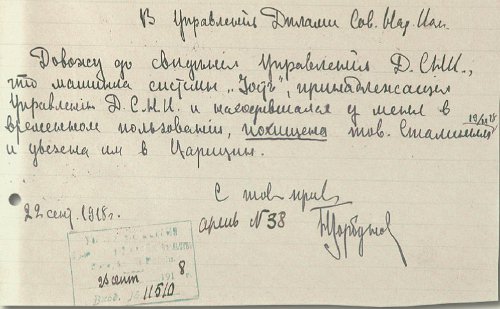 В Управленiе Дѣлами Сов. Нар. Ком.
Довожу до свѣдѣнiя Управленiя Д.С.Н.К.,
что машинка системы „Iостъ", принадлежащая
Управленiю Д.С.Н.К. и находившаяся у меня в
временном пользовании, похищена тов. Сталиным
19/IX 18
и увезена им в Царицын.
С тов. прив.
22 сент. 1918 г.
архив N 38
Горбунов
25 сент 191 8
Вход. № 11510